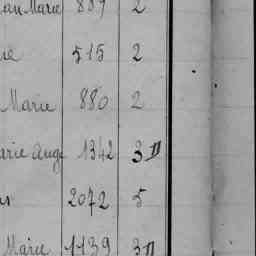 an Marie 889 2
ie 515 2
Marie 880 2
arie Ange 1342 3 II
2072 5
Marie 1139 3 II